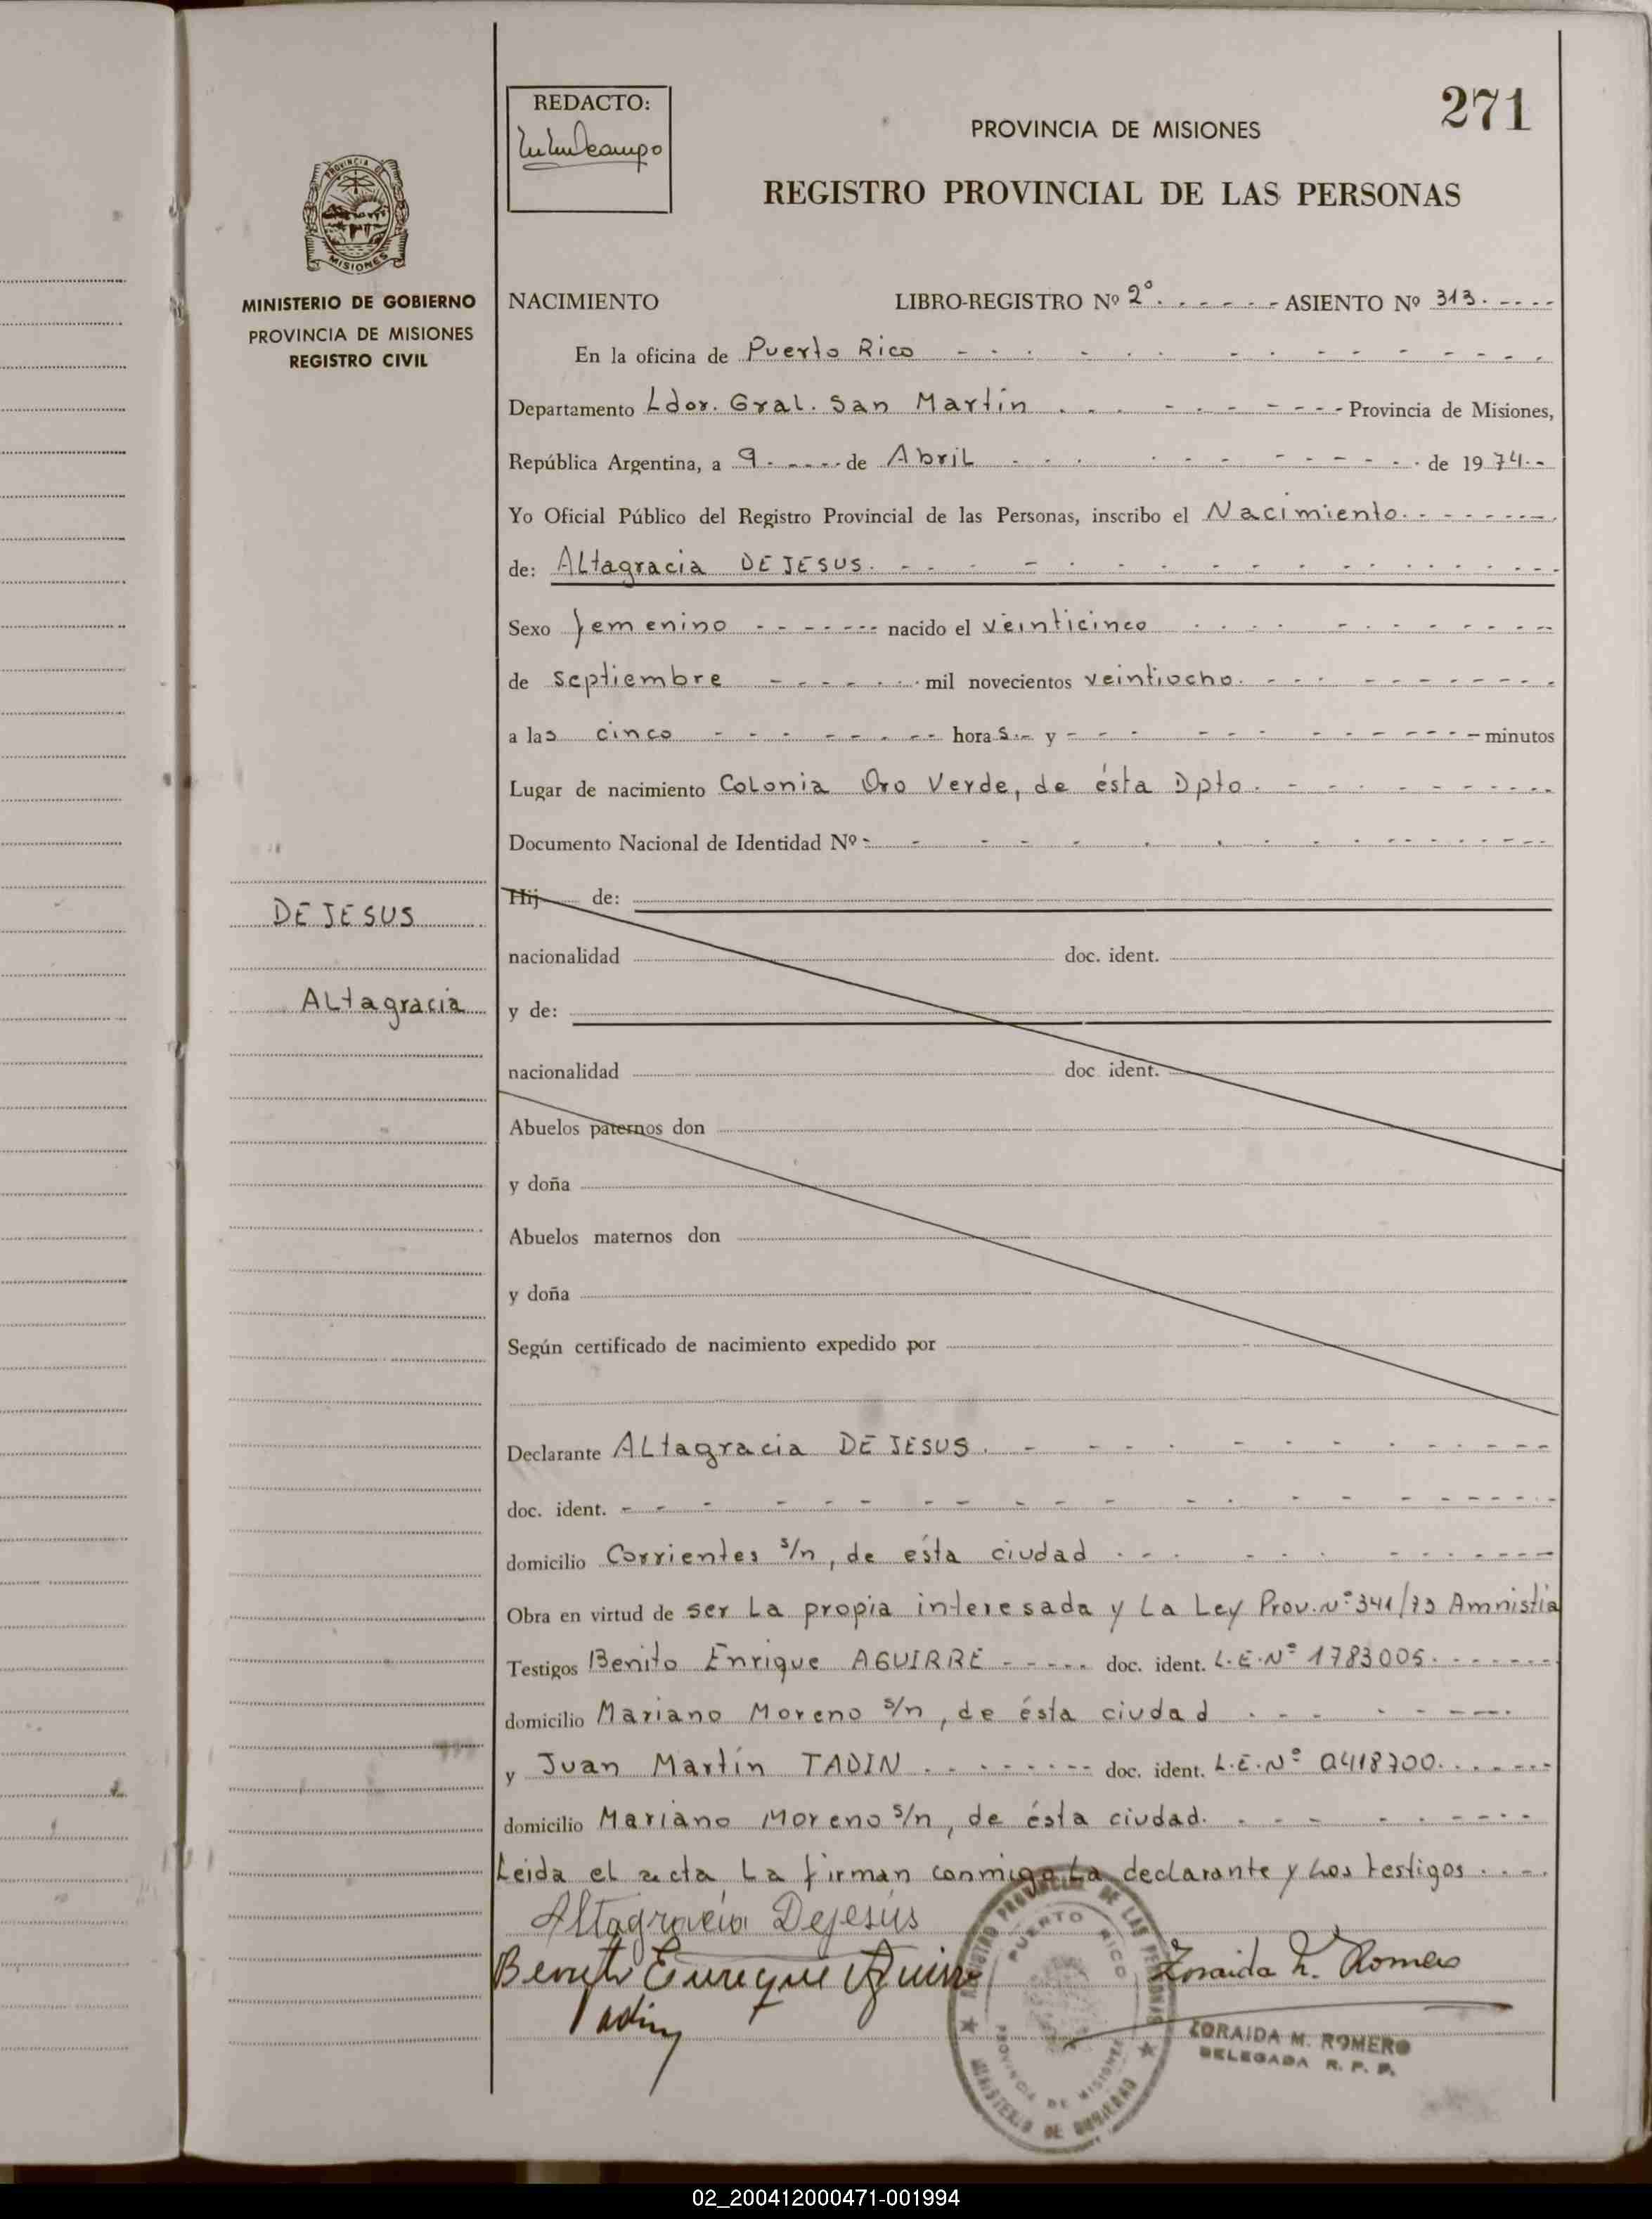 271
REDACTO:
PROVINCIA DE MISIONES
REGISTRO PROVINCIAL DE LAS PERSONAS
PROVINCIA DE
MISIONES
MINISTERIO DE GOBIERNO
PROVINCIA DE MISIONES
REGISTRO CIVIL
DE JESUS
ALtagracia
NACIMIENTO LIBRO-REGISTRO Nº 2º. - - - - - ASIENTO Nº 313. - - - -
En la oficina de Puerto Rico
Departamento Ldor. Gral. San Martín - - - Provincia de Misiones,
República Argentina, a 9. - - - - de Abril - - - de 1974.-
Yo Oficial Público del Registro Provincial de las Personas, inscribo el Nacimiento.
de: ALtagracia DE JESUS.
Sexo femenino - - - - - - nacido el veinticinco
de septiembre - - - - - mil novecientos veintiocho.
a las cinco - - - - - horas.- y - - - - - minutos
Lugar de nacimiento Colonia Oro Verde, de ésta Dpto.
Documento Nacional de Identidad Nº -
Hij de:
nacionalidad doc. ident.
y de:
nacionalidad doc. ident.
Abuelos paternos don
y doña
Abuelos maternos don
y doña
Según certificado de nacimiento expedido por
Declarante ALtagracia DE JESUS.
doc. ident. - - - - -
domicilio Corrientes s/n, de ésta ciudad
Obra en virtud de ser La propia interesada y La Ley Prov. Nº 341/73 Amnistia
Testigos Benito Enrique AGUIRRE - - - - - doc. ident. L.E. Nº 1783005.
domicilio Mariano Moreno s/n, de ésta ciudad
y Juan Martín TADIN - - - - - doc. ident. L.E. Nº 0418700.
domicilio Mariano Moreno s/n, de ésta ciudad.
Leida el acta, La firman conmigo La declarante y Los testigos
Altagracia Dejesús
Benito Enrique Aguirre
Zoraida M. Romero
Tadin
REGISTRO PROVINCIAL DE LAS PERSONAS
PUERTO RICO
PROVINCIA DE MISIONES
MINISTERIO DE GOBIERNO
ZORAIDA M. ROMERO
DELEGADA R. P. P.
02_200412000471-001994